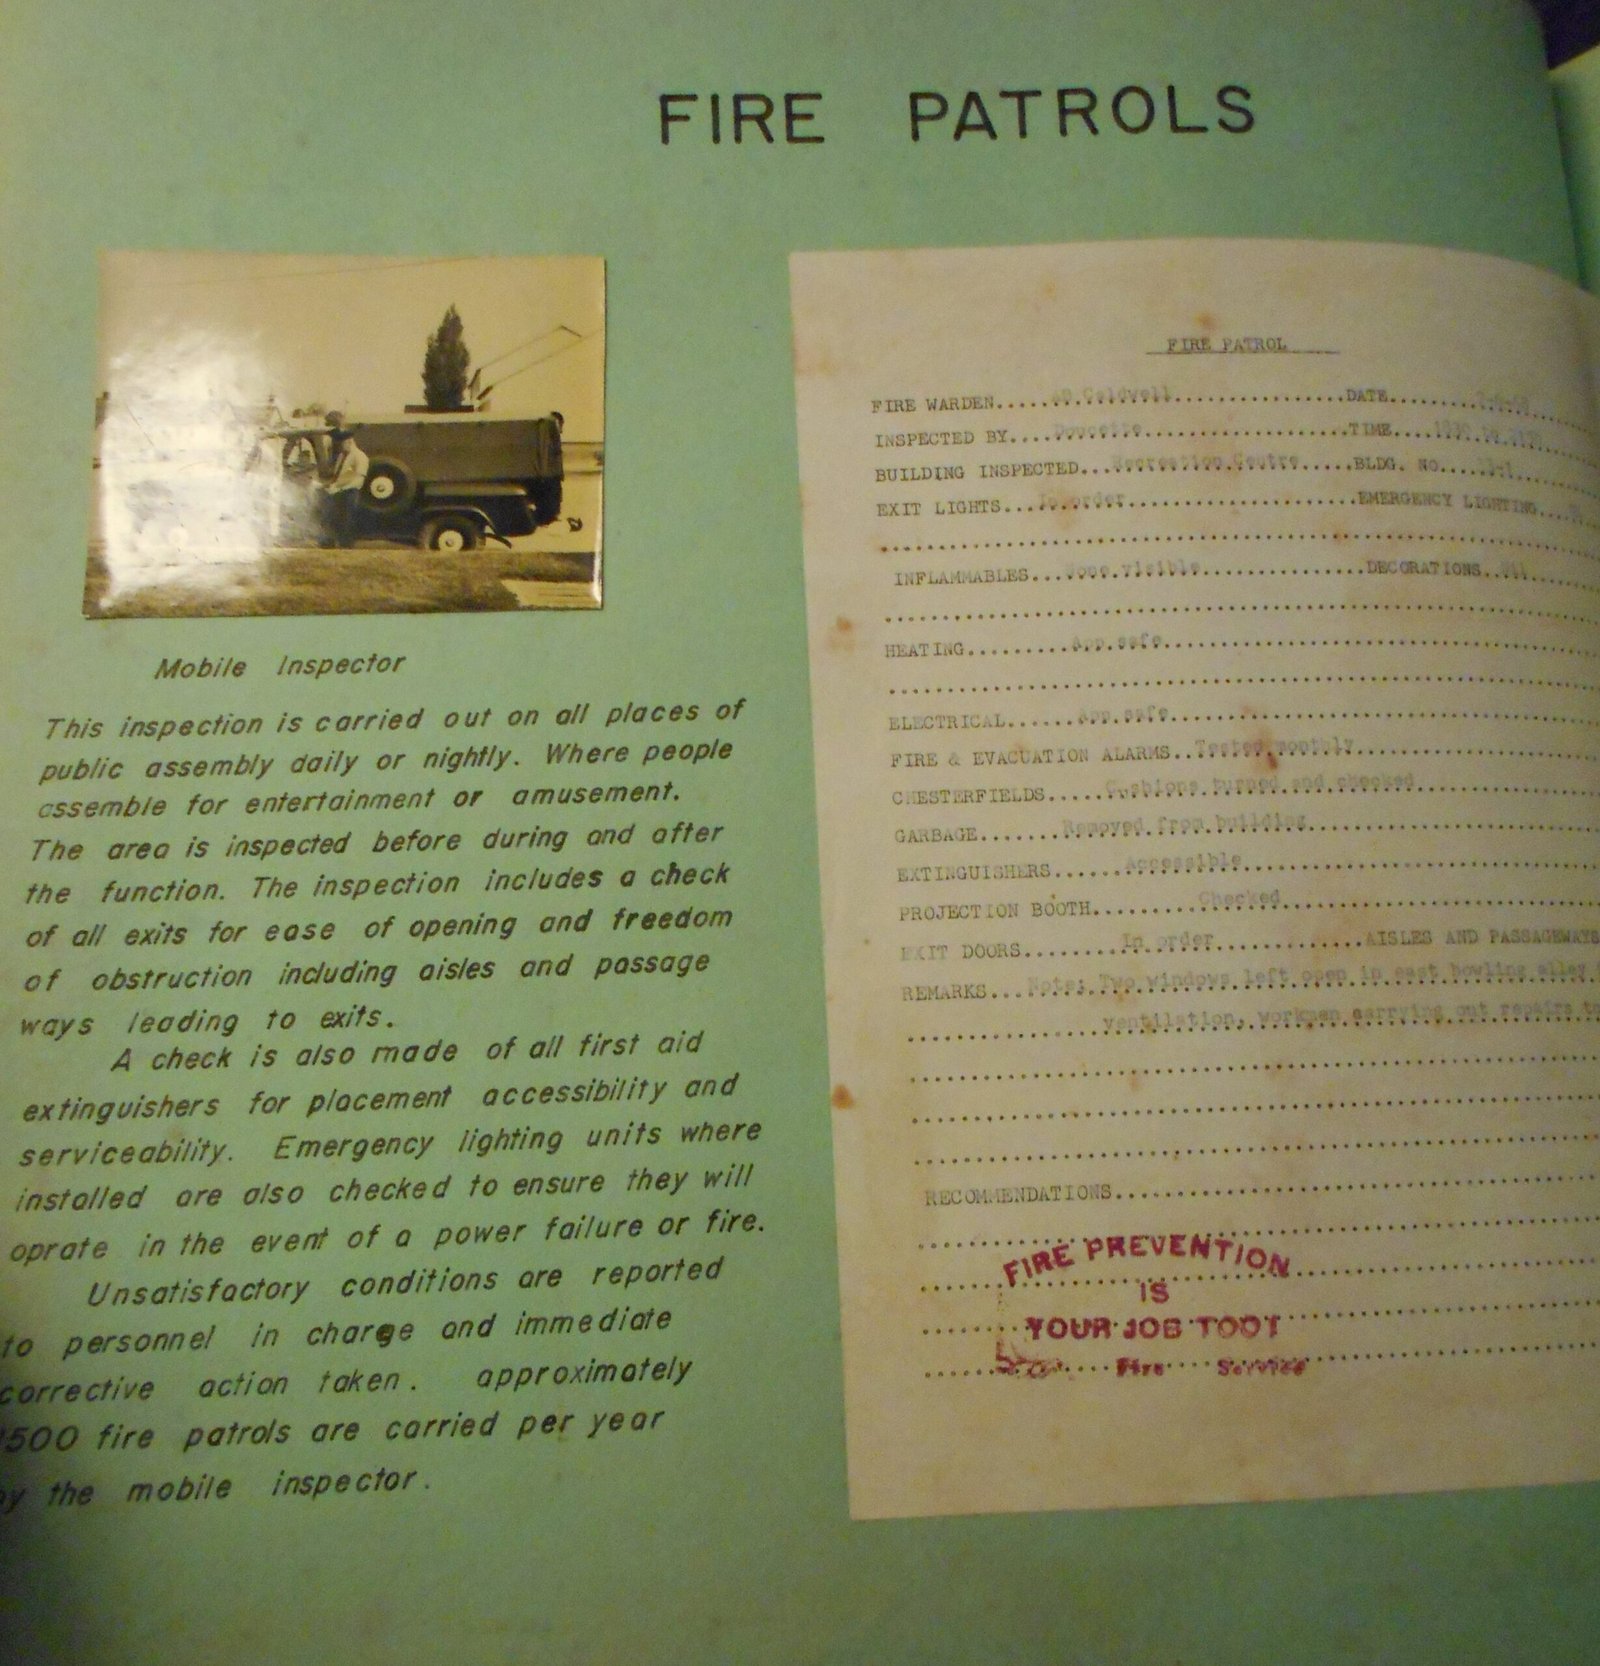 FIRE PATROLS
Mobile Inspector
This inspection is carried out on all places of
public assembly daily or nightly. Where people
assemble for entertainment or amusement.
The area is inspected before during and after
the function. The inspection includes a check
of all exits for ease of opening and freedom
of obstruction including aisles and passage
ways leading to exits.
A check is also made of all first aid
extinguishers for placement accessibility and
serviceability. Emergency lighting units where
installed are also checked to ensure they will
oprate in the event of a power failure or fire.
Unsatisfactory conditions are reported
to personnel in charge and immediate
corrective action taken. approximately
1500 fire patrols are carried per year
by the mobile inspector.
FIRE PATROL
FIRE WARDEN..... Caldwell.................DATE.........
INSPECTED BY....Doucette...................TIME....
BUILDING INSPECTED...Recreation Centre.....BLDG. NO.....
EXIT LIGHTS...In order.....................EMERGENCY LIGHTING....
INFLAMMABLES...None visible...............DECORATIONS..Nil
HEATING.........App.safe
ELECTRICAL......App.safe
FIRE & EVACUATION ALARMS..Tested monthly
CHESTERFIELDS.....Cushions turned and checked
GARBAGE.......Removed from building
EXTINGUISHERS......Accessible
PROJECTION BOOTH.........Checked
EXIT DOORS........In order.............AISLES AND PASSAGEWAYS
REMARKS...Note: Two windows left open in east bowling alley
ventilation, workmen carrying out repairs to
RECOMMENDATIONS
FIRE PREVENTION
IS
YOUR JOB TOO!
Fire Service